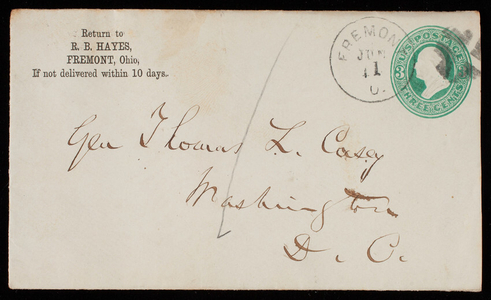 Return to
R. B. HAYES,
FREMONT, Ohio,
If not delivered within 10 days.
FREMONT
JUN
11
O.
U.S. POSTAGE
3 3
THREE CENTS
Gen Thomas L. Casey
Washington
D. C.